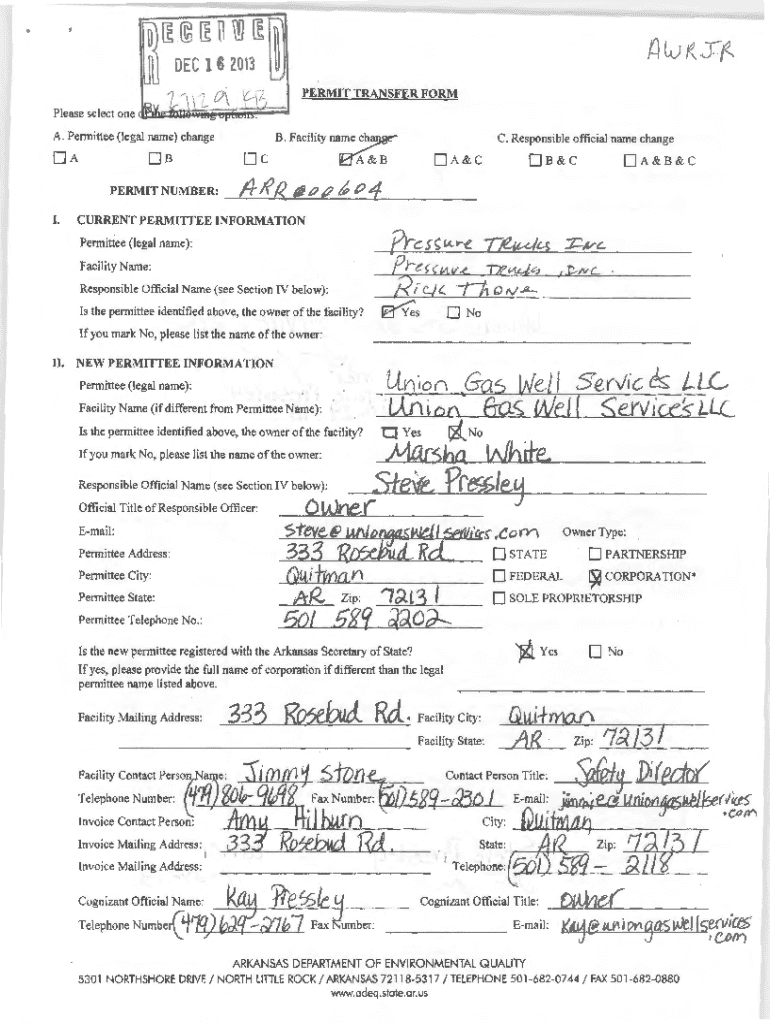 RECEIVED
AWRJR
DEC 16 2013
PERMIT TRANSFER FORM
By 27129 KB
Please select one of the following options:
A. Permittee (legal name) change B. Facility name change C. Responsible official name change
A B C A & B A & C B & C A & B & C
PERMIT NUMBER: ARR000604
I. CURRENT PERMITTEE INFORMATION
Permittee (legal name): Pressure Trucks Inc
Facility Name: Pressure Trucks, INC.
Responsible Official Name (see Section IV below): Rick Thone
Is the permittee identified above, the owner of the facility? Yes No
If you mark No, please list the name of the owner:
II. NEW PERMITTEE INFORMATION
Permittee (legal name): Union Gas Well Services LLC
Facility Name (if different from Permittee Name): Union Gas Well Service's LLC
Is the permittee identified above, the owner of the facility? Yes No
If you mark No, please list the name of the owner: Marsha White
Responsible Official Name (see Section IV below): Steve Pressley
Official Title of Responsible Officer: Owner
E-mail: Steve@uniongaswellservices.com Owner Type:
Permittee Address: 333 Rosebud Rd STATE PARTNERSHIP
Permittee City: Quitman FEDERAL CORPORATION*
Permittee State: AR Zip: 72131 SOLE PROPRIETORSHIP
Permittee Telephone No.: 501 589 2202
Is the new permittee registered with the Arkansas Secretary of State? Yes No
If yes, please provide the full name of corporation if different than the legal
permittee name listed above.
Facility Mailing Address: 333 Rosebud Rd. Facility City: Quitman
Facility State: AR Zip: 72131
Facility Contact Person Name: Jimmy Stone Contact Person Title: Safety Director
Telephone Number: (479) 806-9698 Fax Number: (501) 589-2301 E-mail: jimmie@uniongaswellservices.com
Invoice Contact Person: Amy Hilburn City: Quitman
Invoice Mailing Address: 333 Rosebud Rd. State: AR Zip: 72131
Invoice Mailing Address: Telephone: (501) 589-2118
Cognizant Official Name: Kay Pressley Cognizant Official Title: Owner
Telephone Number (479) 629-2767 Fax Number: E-mail: Kay@uniongaswellservices.com
ARKANSAS DEPARTMENT OF ENVIRONMENTAL QUALITY
5301 NORTHSHORE DRIVE / NORTH LITTLE ROCK / ARKANSAS 72118-5317 / TELEPHONE 501-682-0744 / FAX 501-682-0880
www.adeq.state.ar.us